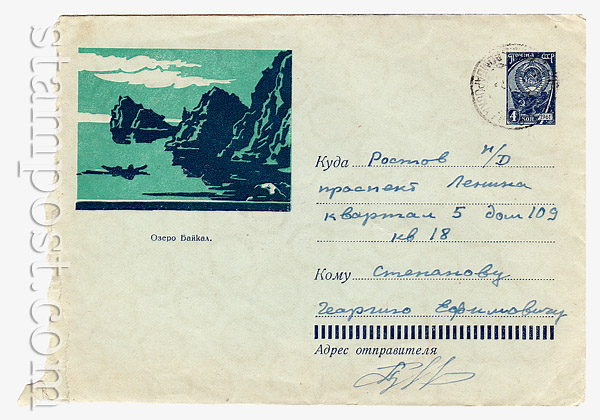 Почта СССР
4 коп
Озеро Байкал.
Куда Ростов н/Д
проспект Ленина
квартал 5 дом 109
кв 18
Кому Степанову
Георгию Ефимовичу
Адрес отправителя
stampost.com